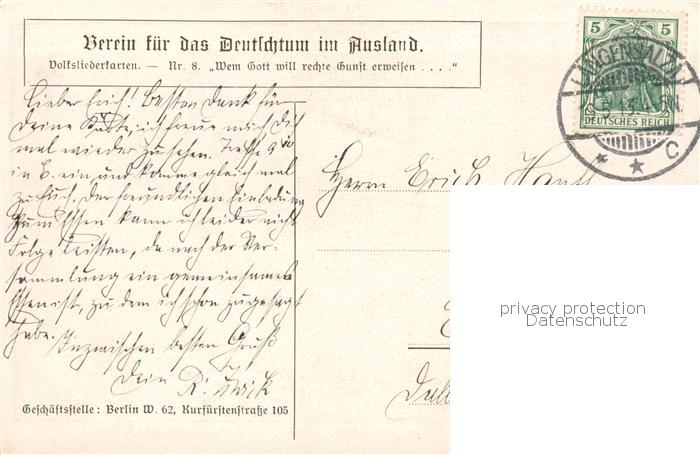 Verein für das Deutschtum im Ausland.
Volksliederkarten. — Nr. 8. „Wem Gott will rechte Gunst erweisen . . . .“
5 5
DEUTSCHES REICH
C
Lieber Erich! Besten Dank für
Deine Karte, ich freue mich Dich
mal wieder zu sehen. Treffe 9
in B. ein und komme gleich mal
zu Euch. Der freundlichen Einladung
zum Essen kann ich leider nicht
Folge leisten, da nach der Ver-
sammlung ein gemeinsames
Essen ist, zu dem ich schon zugesagt
habe.
Inzwischen besten Gruß
Dein R.
Herrn Erich
privacy protection
Datenschutz
Geschäftsstelle: Berlin W. 62, Kurfürstenstraße 105